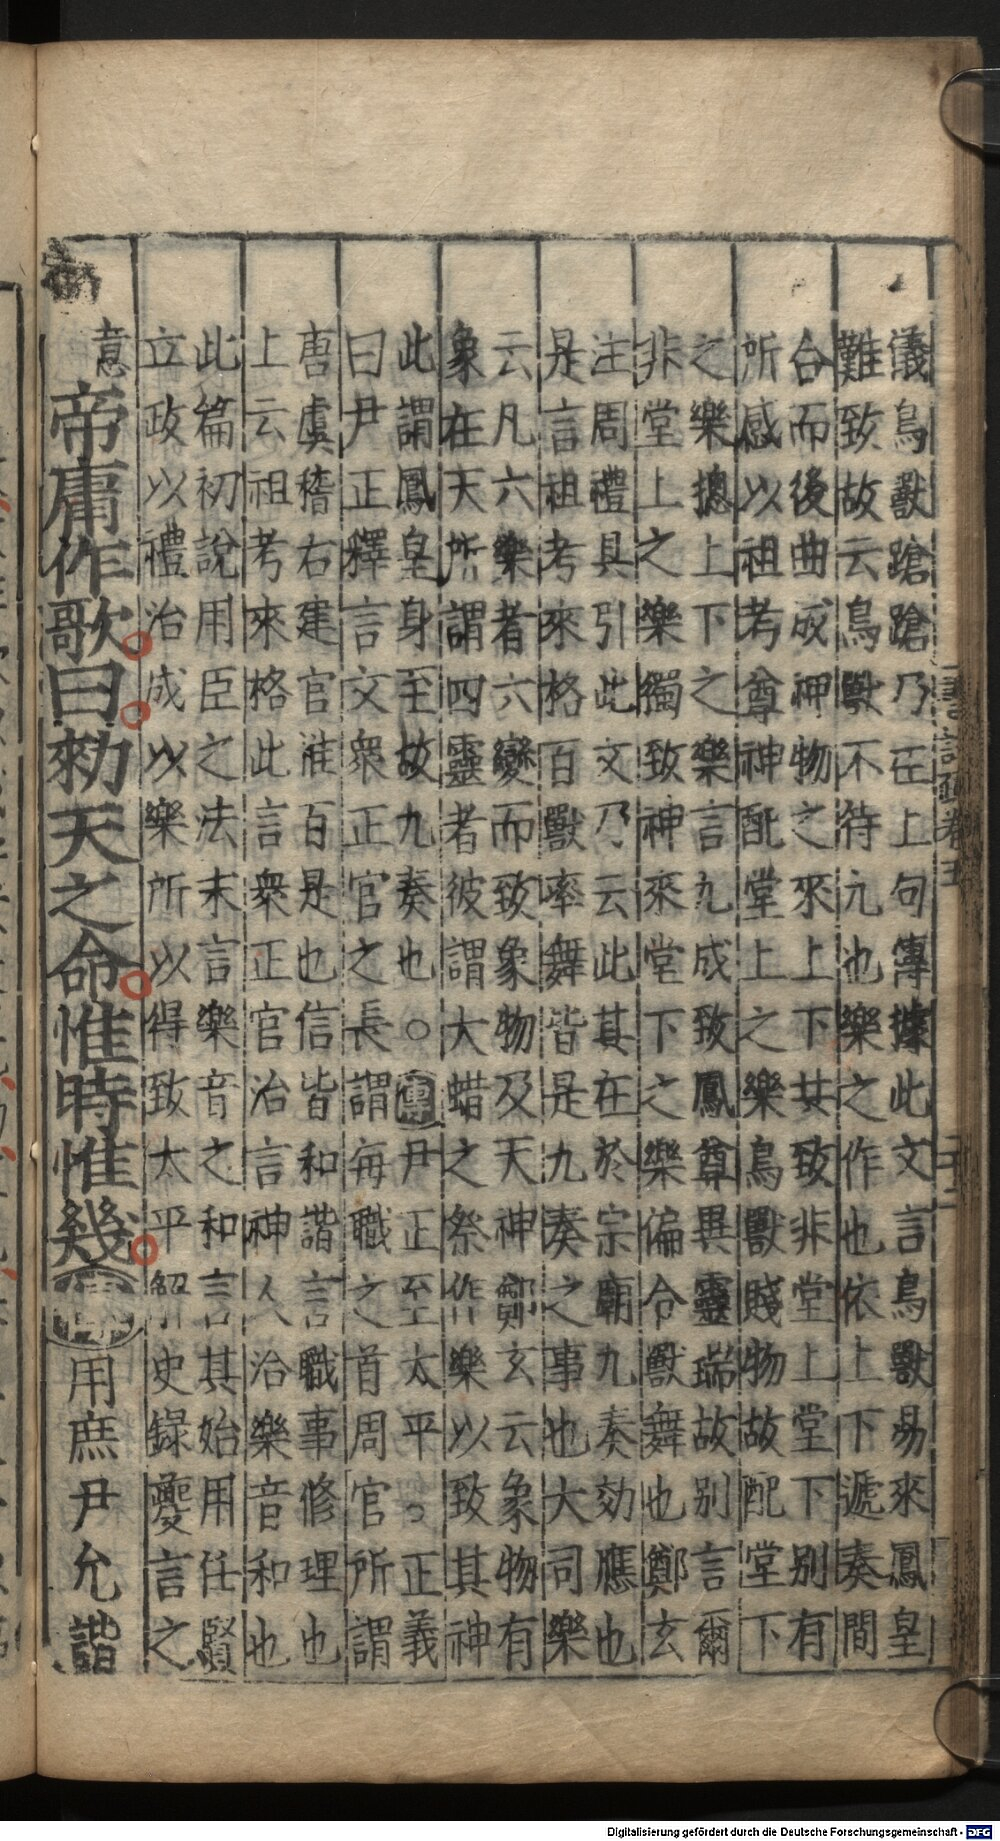 儀鳥獸蹌蹌乃在上句傳據此文言鳥獸易來鳳皇
難致故云鳥獸不待九也樂之作也依上下遞奏間
合而後曲成神物之來上下共致非堂上堂下別有
所感以祖考尊神配堂上之樂鳥獸賤物故配堂下
之樂摠上下之樂言九成致鳳尊異靈瑞故別言爾
非堂上之樂獨致神來堂下之樂偏令獸舞也鄭玄
注周禮具引此文乃云此其在於宗廟九奏効應也
是言祖考來格百獸率舞皆是九奏之事也大司樂
云凡六樂者六變而致象物及天神鄭玄云象物有
象在天所謂四靈者彼謂大蜡之祭作樂以致其神
此謂鳳皇身至故九奏也○傳尹正至太平。正義
曰尹正釋言文衆正官之長謂每職之首周官所謂
唐虞稽右建官惟百是也信皆和諧言職事修理也
上云祖考來格此言衆正官治言神人治樂音和也
此篇初說用臣之法末言樂音之和言其始用任賢
立政以禮治成以樂所以得致太平解史錄夔言之
意
帝庸作歌曰勑天之命惟時惟幾傳用庶尹允諧
書註疏卷五
Digitalisierung gefördert durch die Deutsche Forschungsgemeinschaft - DFG